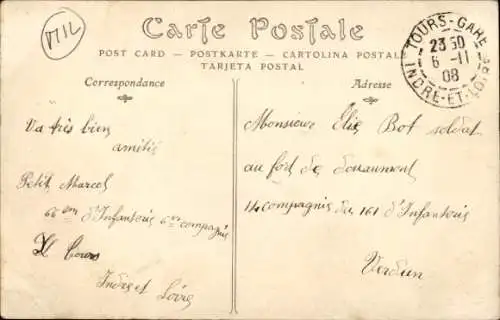 VTIL
Carte Postale
POST CARD — POSTKARTE — CARTOLINA POSTALE
TARJETA POSTAL
TOURS-GARE
23 50
6 - 11
08
INDRE-ET-LOIRE
Correspondance
Va très bien
amitis
Petit Marcel
66 em d'Infanteris 6 em compagnis
Tours
Indre et Loire
Adresse
Monsieur Elie Bot soldat
au fort de douaumont
14 compagnis du 161 d'Infanteris
Verdun